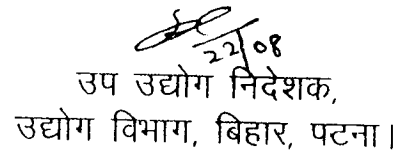 22/08
उप उद्योग निदेशक,
उद्योग विभाग, बिहार, पटना।